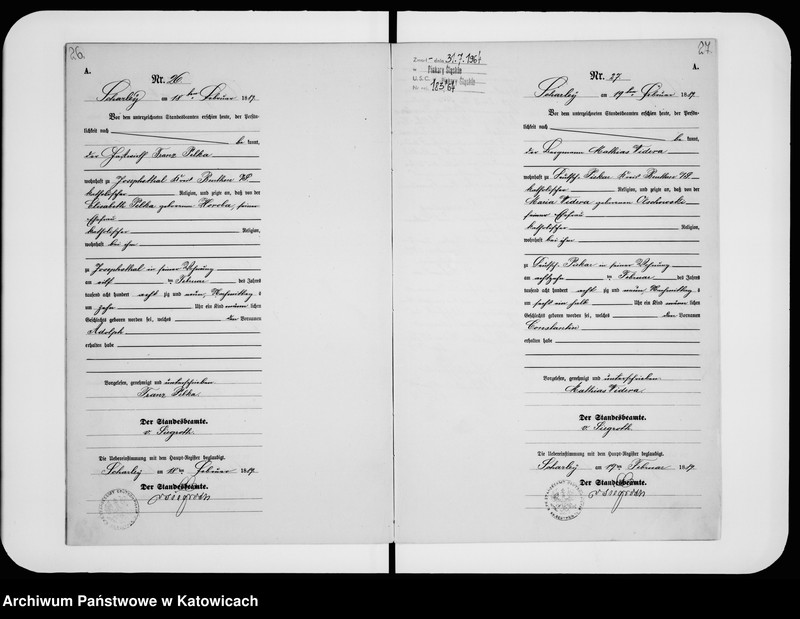 26.
A.
Nr. 26
Scharley am 18ten Februar 1889.
Vor dem unterzeichneten Standesbeamten erschien heute, der Persön-
lichkeit nach
be kannt,
der Franz Pilka
wohnhaft zu Josephsthal Kreis Beuthen O/S
katholischer Religion, und zeigte an, daß von der
Elisabeth Pilka geborenen Horoba, seiner
Ehefrau
katholischer Religion,
wohnhaft bei ihm
zu Josephsthal in seiner Wohnung
am elf ten Februar des Jahres
tausend acht hundert acht zig und neun, Nachmittag s
um zehn Uhr ein Kind männ lichen
Geschlechts geboren worden sei, welches den Vornamen
Adolph
erhalten habe
Vorgelesen, genehmigt und unterschrieben
Franz Pilka
Der Standesbeamte.
v. Siegroth
Die Uebereinstimmung mit dem Haupt-Register beglaubigt.
Scharley am 18ten Februar 1889.
Der Standesbeamte.
v. Siegroth
27.
A.
Zmarł dnia 31.7.1964
w Piekary Śląskie
U.S.C. Piekary Śląskie
Nr 183/64
Nr. 27
Scharley am 19ten Februar 1889.
Vor dem unterzeichneten Standesbeamten erschien heute, der Persön-
lichkeit nach
be kannt,
der Bergmann Mathias Widera
wohnhaft zu Deutsch Piekar Kreis Beuthen O/S
katholischer Religion, und zeigte an, daß von der
Maria Widera geborenen
seiner Ehefrau
katholischer Religion,
wohnhaft bei ihm
zu Deutsch Piekar in seiner Wohnung
am achtzehn ten Februar des Jahres
tausend acht hundert acht zig und neun, Nachmittag s
um halb Uhr ein Kind männ lichen
Geschlechts geboren worden sei, welches den Vornamen
Constantin
erhalten habe
Vorgelesen, genehmigt und unterschrieben
Mathias Widera
Der Standesbeamte.
v. Siegroth
Die Uebereinstimmung mit dem Haupt-Register beglaubigt.
Scharley am 19ten Februar 1889.
Der Standesbeamte.
v. Siegroth
Archiwum Państwowe w Katowicach